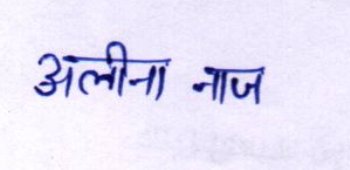 अलीना नाज